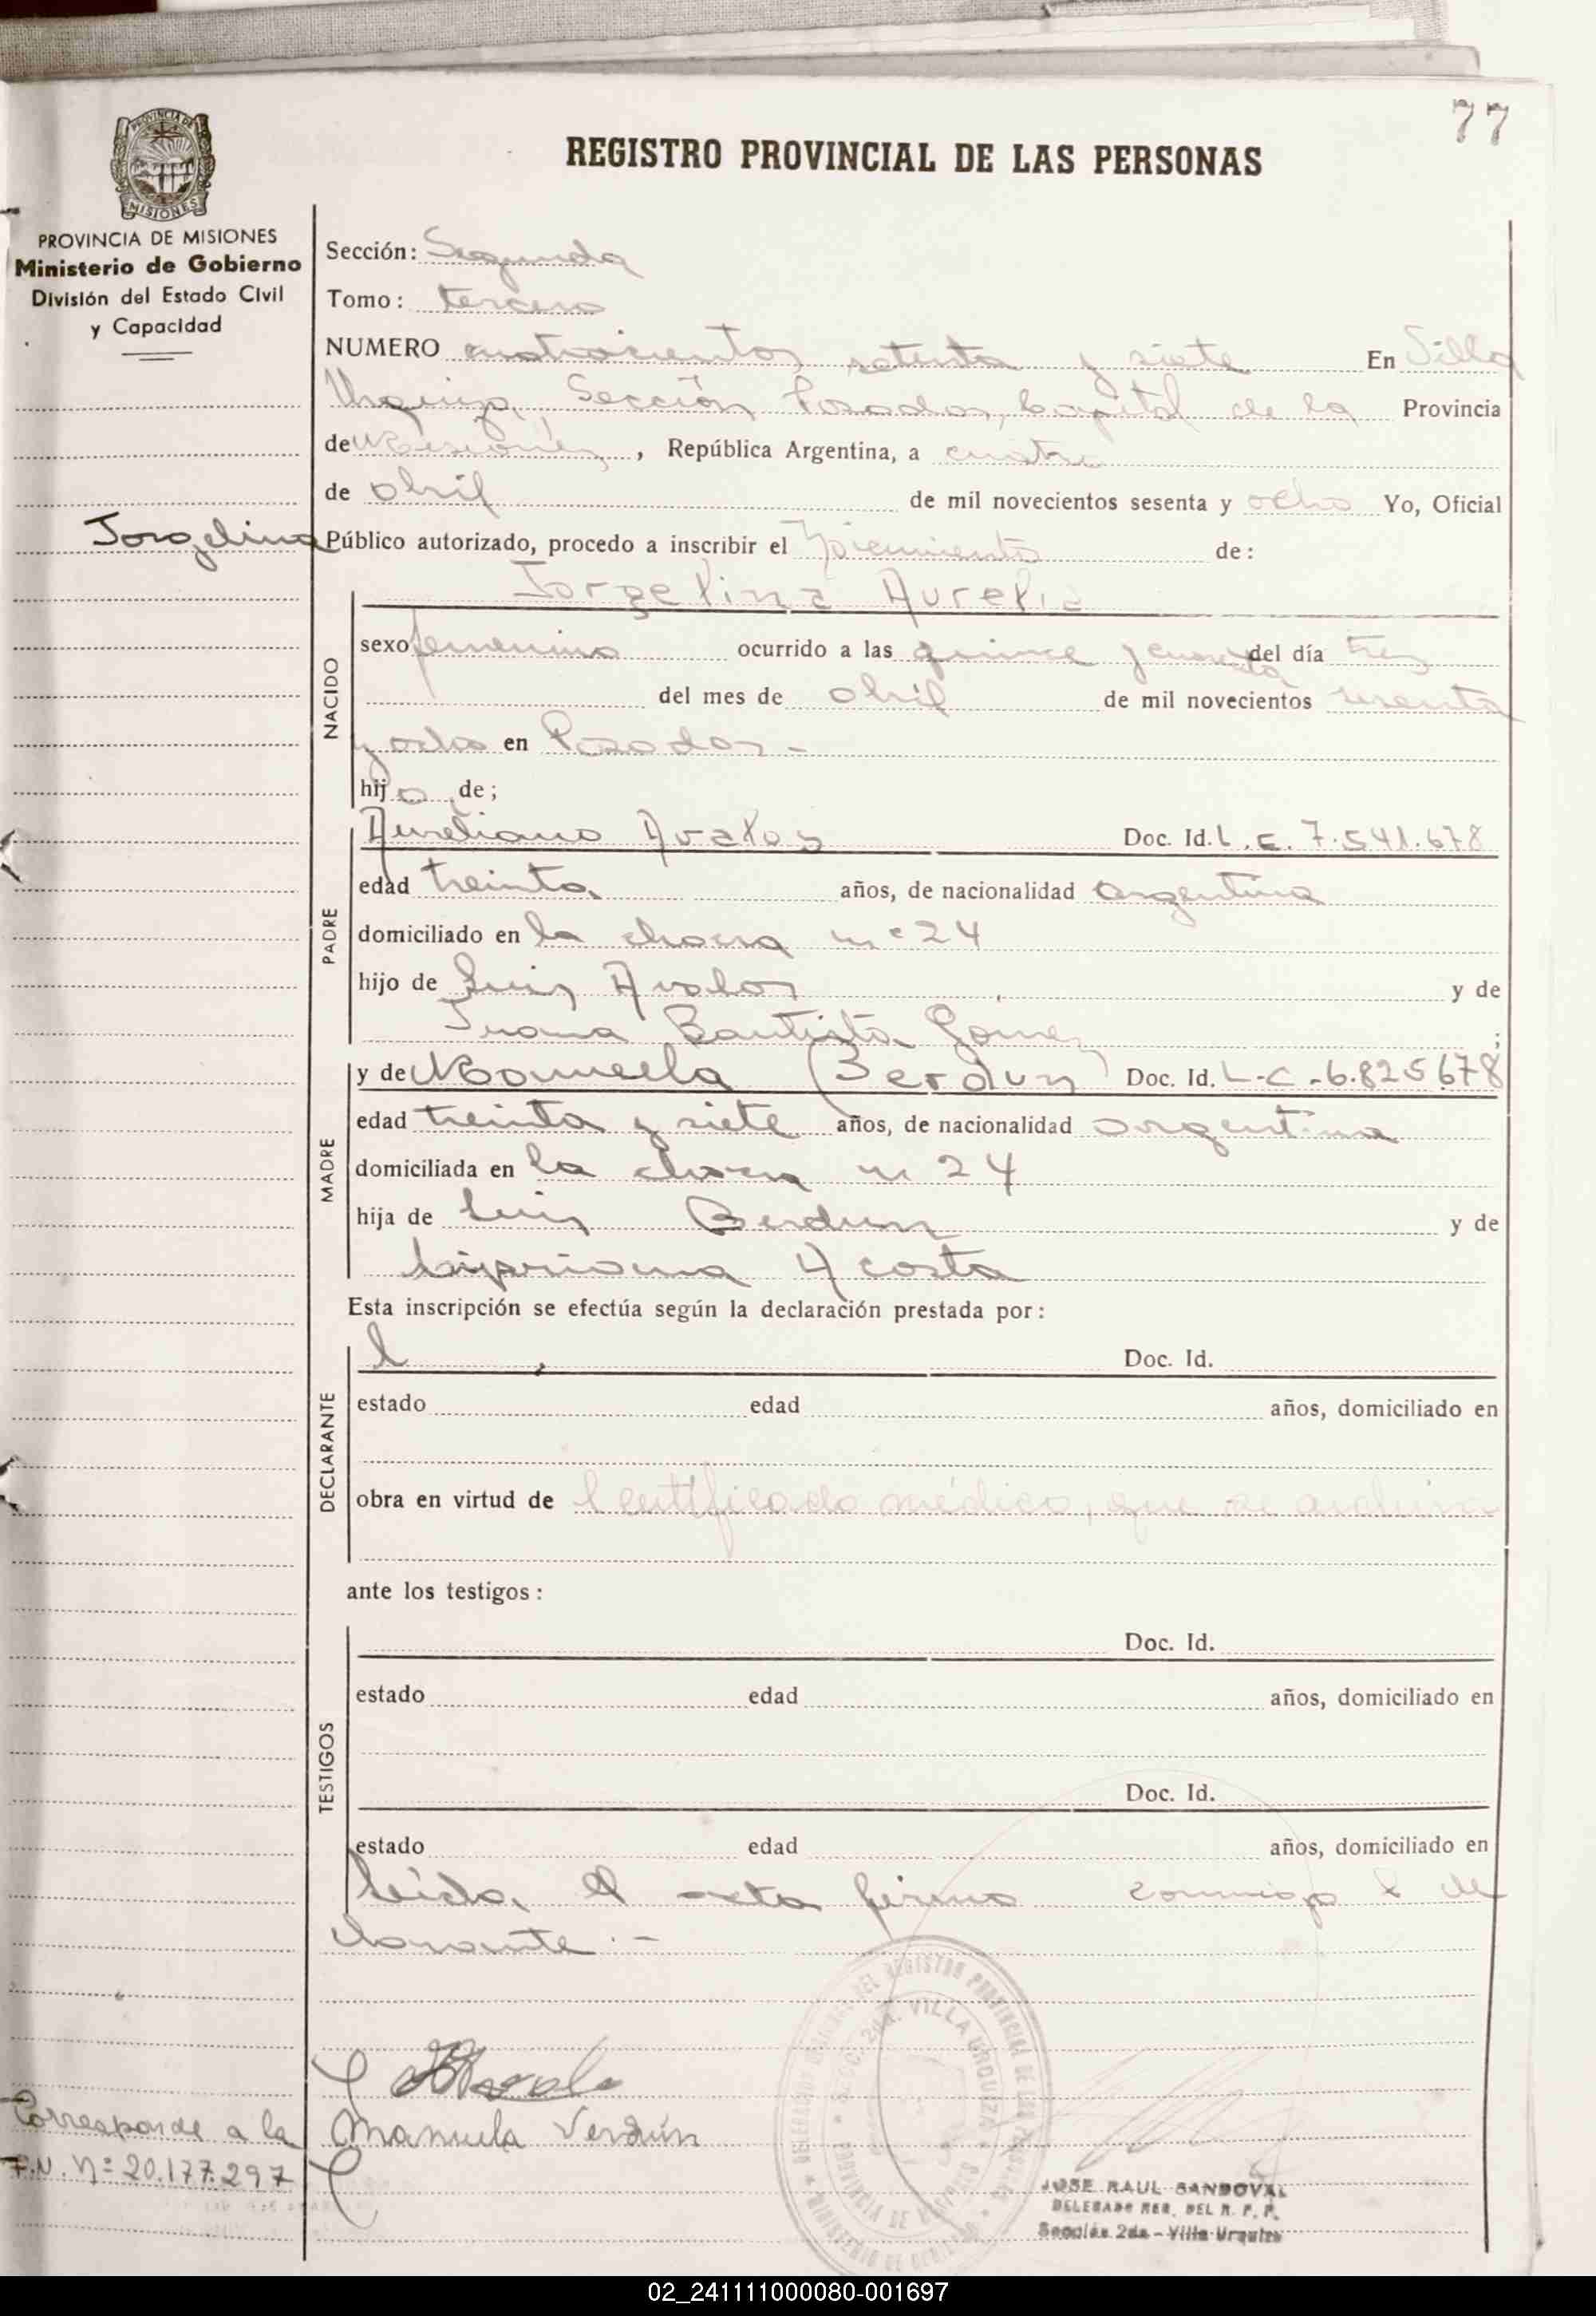 77
REGISTRO PROVINCIAL DE LAS PERSONAS
PROVINCIA DE
MISIONES
PROVINCIA DE MISIONES
Ministerio de Gobierno
División del Estado Civil
y Capacidad
Sección: Segunda
Tomo: tercero
NUMERO cuatrocientos setenta y siete En Villa
Urquiza, Sección Posadas, Capital de la Provincia
de Misiones, República Argentina, a cuatro
de abril de mil novecientos sesenta y ocho Yo, Oficial
Jorgelina
Público autorizado, procedo a inscribir el nacimiento de:
Jorgelina Aurelia
NACIDO
sexo femenino ocurrido a las quince y cuarenta del día tres
del mes de abril de mil novecientos sesenta
y ocho en Posadas -
hija de;
PADRE
Aureliano Avalos Doc. Id. L.E. 7.541.678
edad treinta años, de nacionalidad argentina
domiciliado en la chacra nº 24
hijo de Luis Avalos y de
Juana Bautista Gomez ;
MADRE
y de Manuela Berdun Doc. Id. L-C-6.825678
edad treinta y siete años, de nacionalidad argentina
domiciliada en la chacra n 24
hija de Luis Berdun y de
Cipriana Acosta
Esta inscripción se efectúa según la declaración prestada por:
DECLARANTE
Doc. Id.
estado edad años, domiciliado en
obra en virtud de certificado médico, que se archiva
ante los testigos:
TESTIGOS
Doc. Id.
estado edad años, domiciliado en
Doc. Id.
estado edad años, domiciliado en
Leída el acta firma conmigo l de
clarante.-
Manuela Verdún
Corresponde a la
F.N. Nº 20.177.297
DEL REGISTRO PROVINCIAL DE LAS PERSONAS
SECC. 2da. VILLA URQUIZA
PROVINCIA DE MISIONES
MINISTERIO DE GOBIERNO
JOSE RAUL SANDOVAL
DELEGADO REG. DEL R. P. P.
Sección 2da - Villa Urquiza
02_241111000080-001697